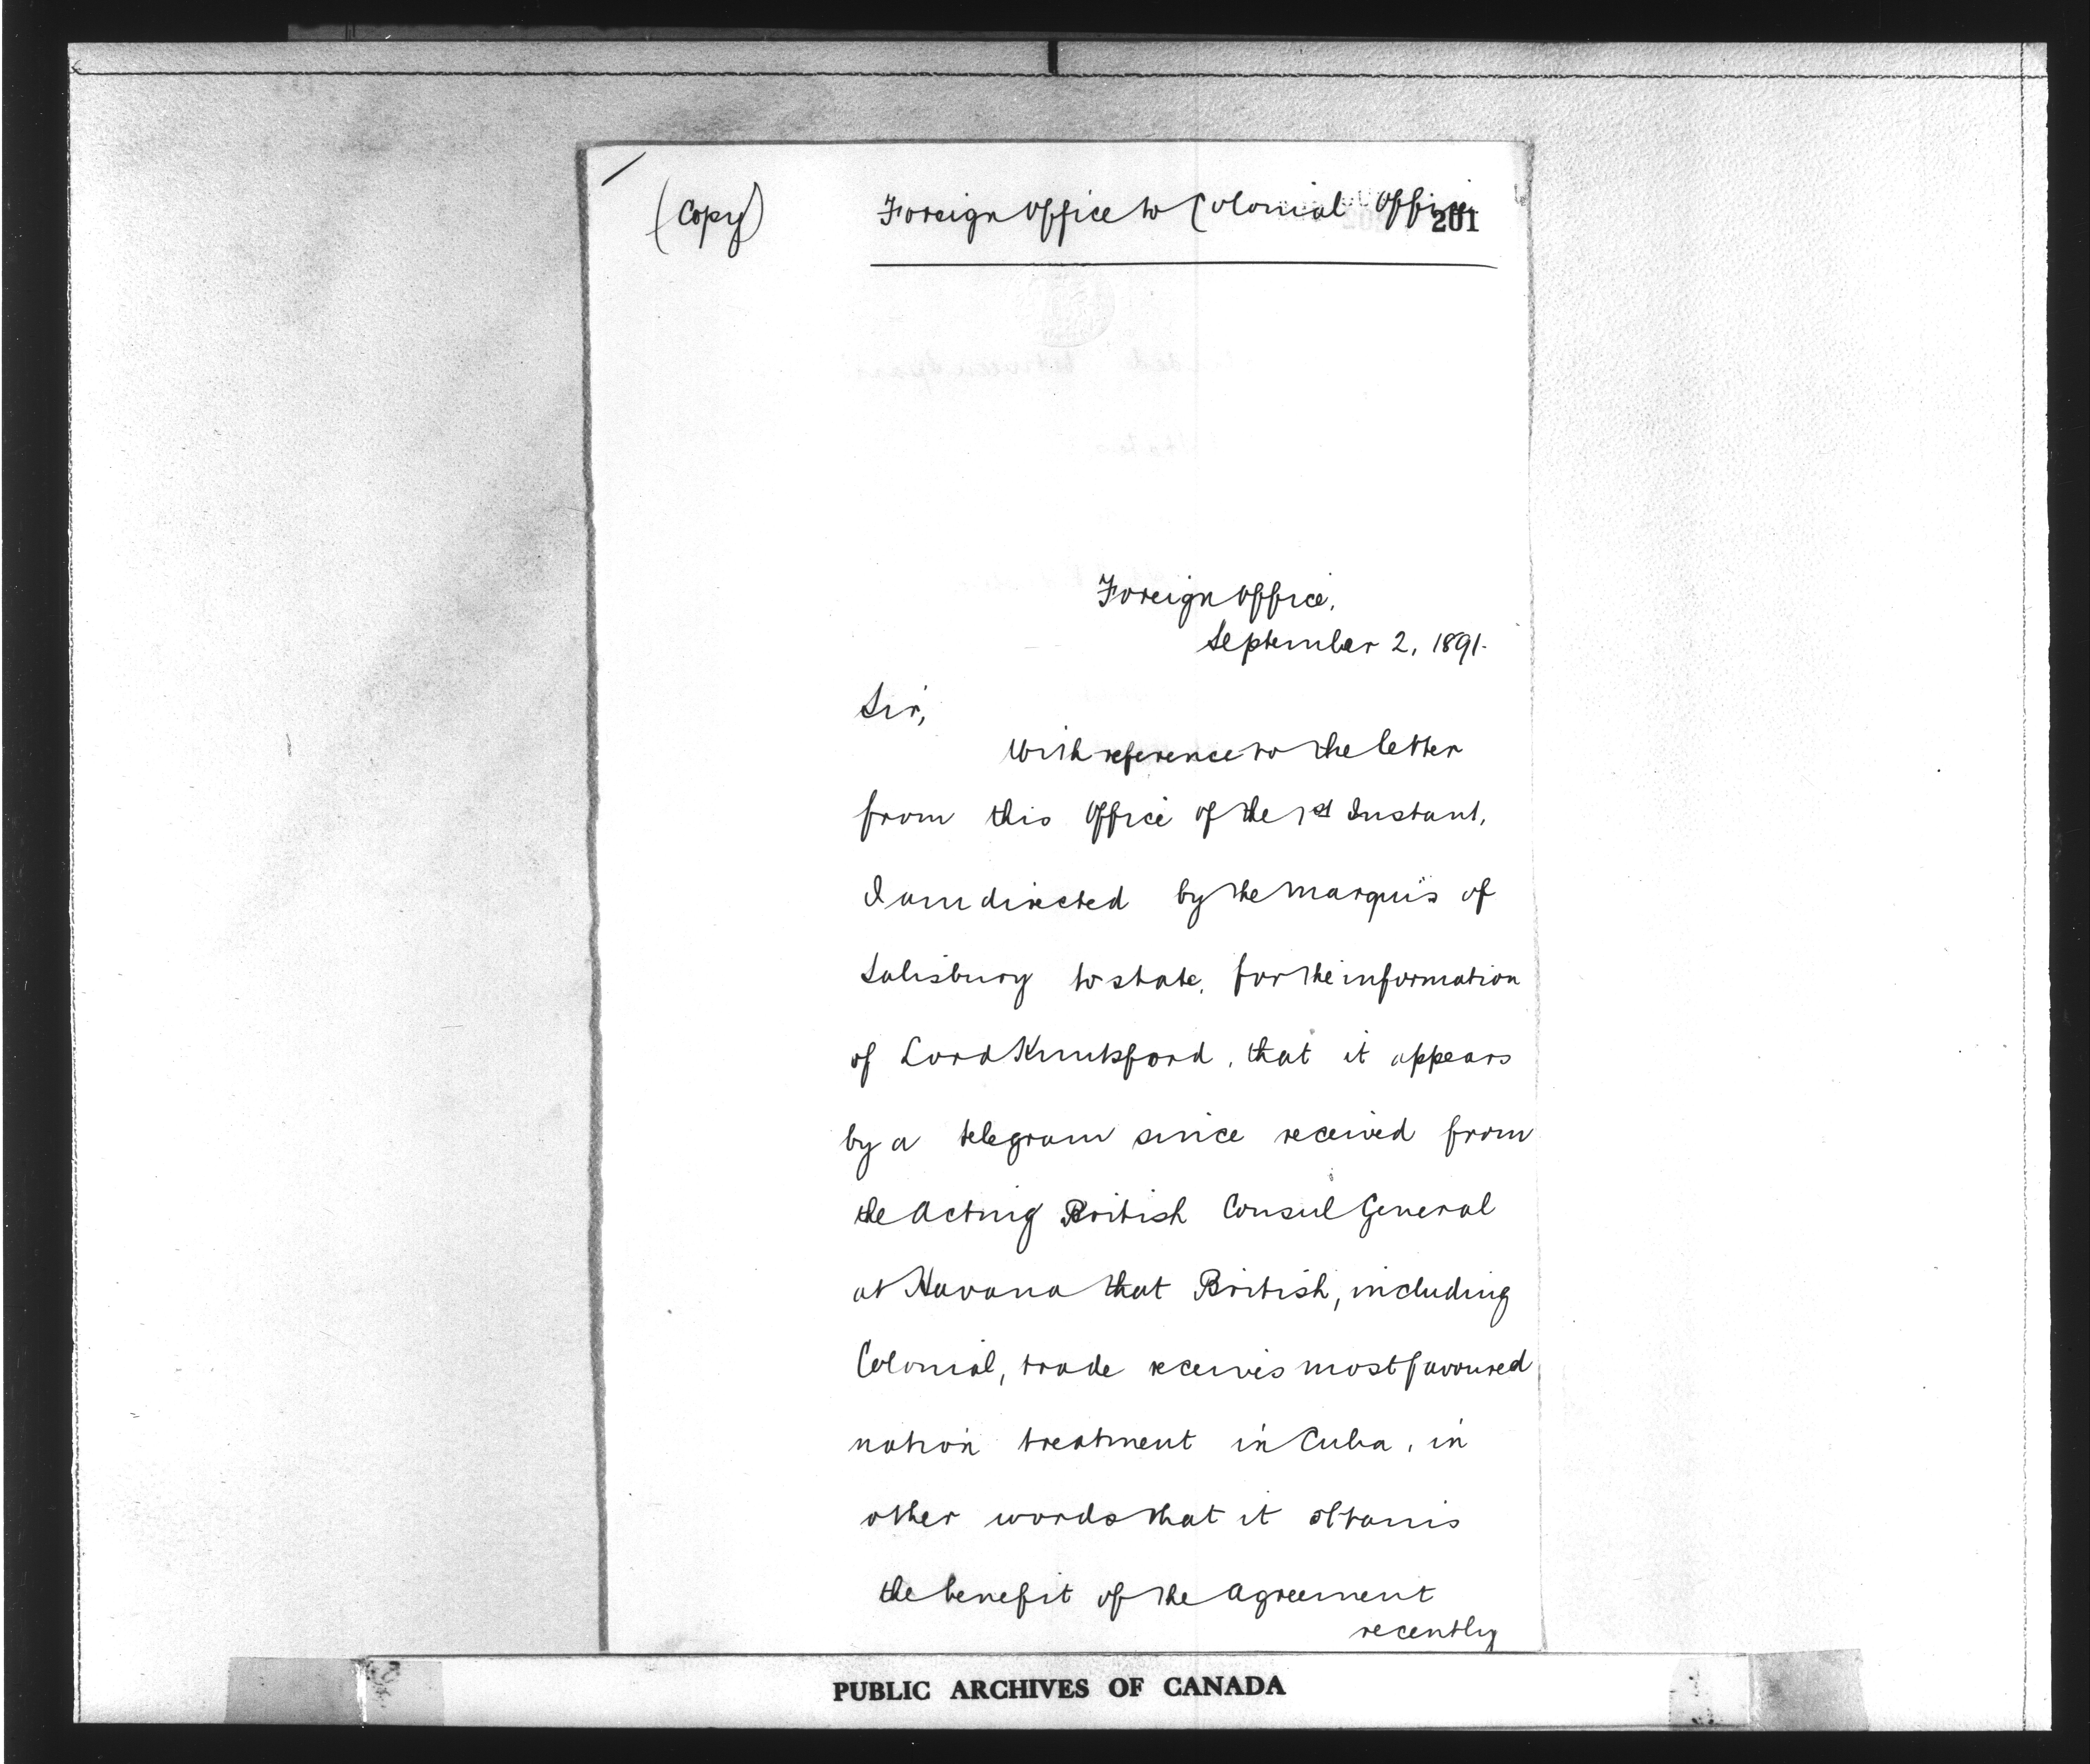 (Copy)
Foreign Office to Colonial Office
201
Foreign Office,
September 2, 1891.
Sir,
With reference to the letter
from this Office of the 1st Instant,
I am directed by the Marquis of
Salisbury to state, for the information
of Lord Knutsford, that it appears
by a telegram since received from
the Acting British Consul General
at Havana that British, including
Colonial, trade receives most favoured
nation treatment in Cuba, in
other words that it obtains
the benefit of the Agreement
recently
PUBLIC ARCHIVES OF CANADA